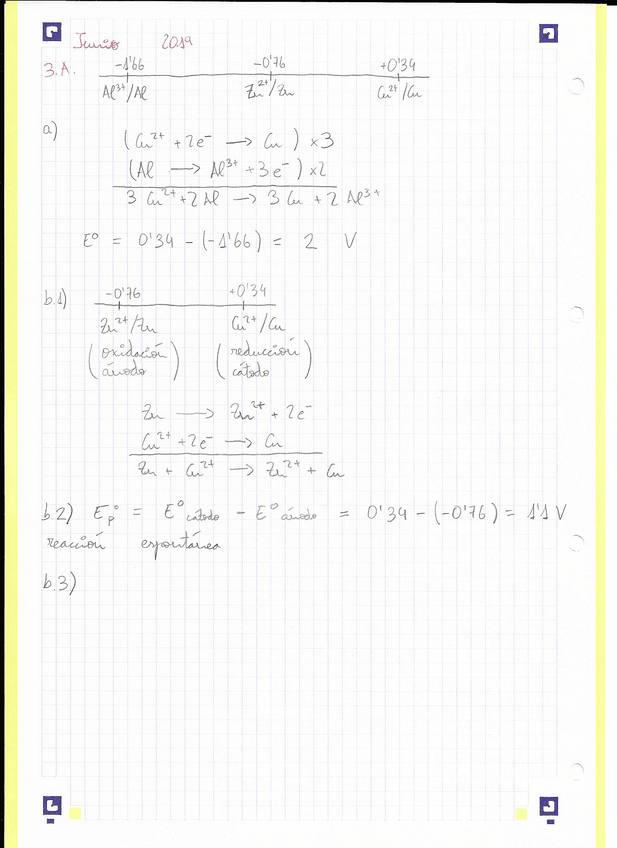 Junio 2019
3.A. -1'66 -0'76 +0'34
Al³⁺/Al Zn²⁺/Zn Cu²⁺/Cu
a)
(Cu²⁺ + 2e⁻ → Cu) x3
(Al → Al³⁺ + 3e⁻) x2
3 Cu²⁺ + 2 Al → 3 Cu + 2 Al³⁺
E⁰ = 0'34 - (-1'66) = 2 V
b.1) -0'76 +0'34
Zn²⁺/Zn Cu²⁺/Cu
(oxidación (reducción
ánodo) cátodo)
Zn → Zn²⁺ + 2e⁻
Cu²⁺ + 2e⁻ → Cu
Zn + Cu²⁺ → Zn²⁺ + Cu
b.2) E°p = E⁰cátodo - E⁰ánodo = 0'34 - (-0'76) = 1'1 V
reacción espontánea
b.3)